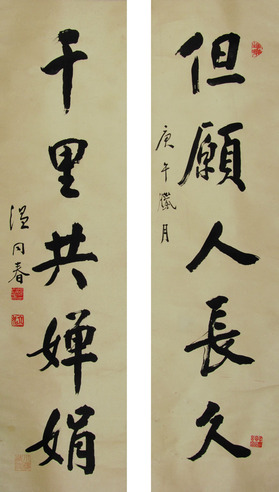 但願人長久
庚午臘月
千里共嬋娟
温同春